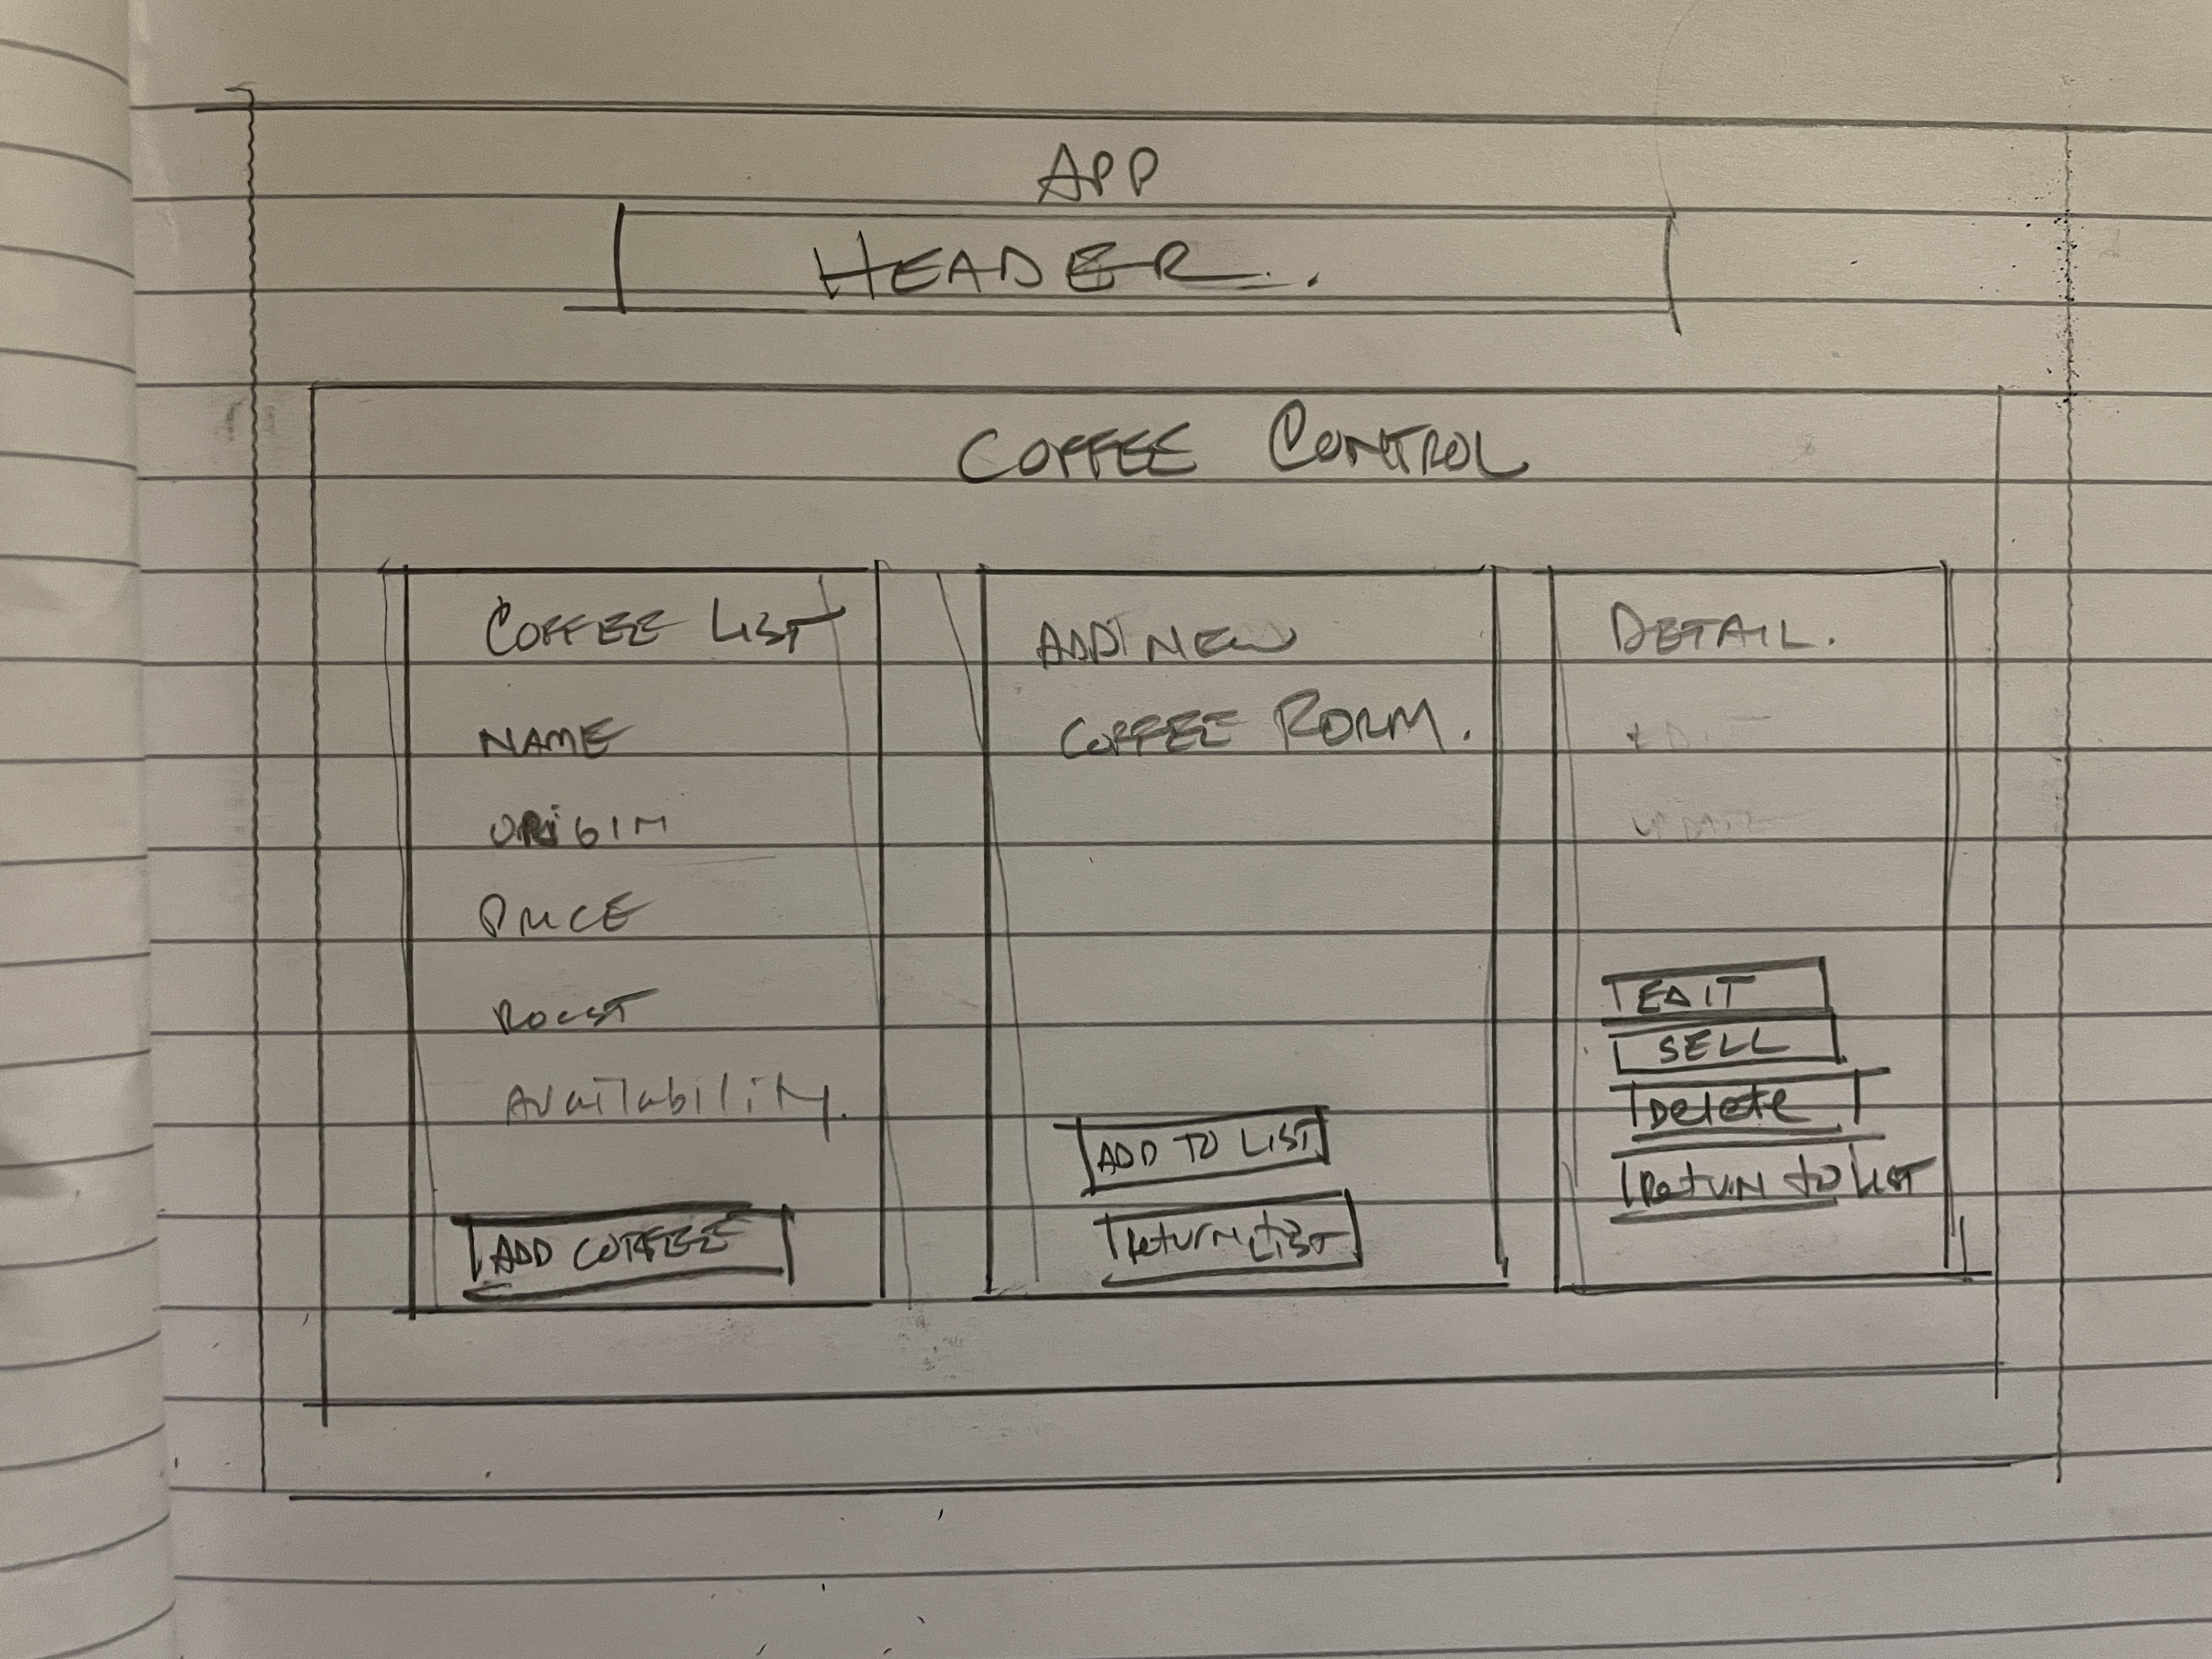 APP
HEADER.
COFFEE CONTROL
COFFEE LIST
NAME
ORIGIN
PRICE
ROAST
Availability.
ADD COFFEE
ADD NEW
COFFEE FORM.
ADD TO LIST
Return to
LIST
DETAIL.
UPDATE
EDIT
SELL
Delete
Return to LIST